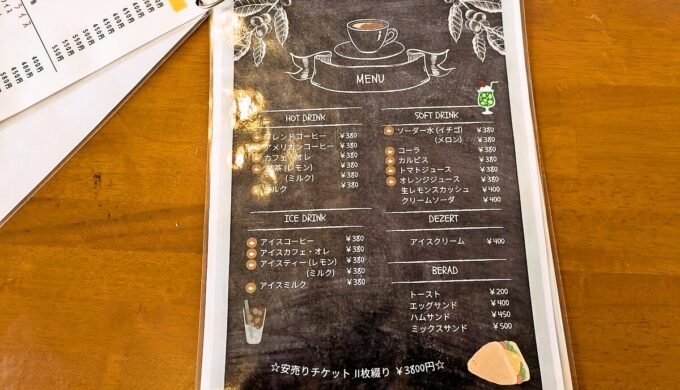 ライス
400円
450円
400円
400円
550円
550円
550円
450円
480円
400円
580円
MENU
HOT DRINK
ブレンドコーヒー ￥380
アメリカンコーヒー ￥380
カフェ・オレ ￥380
茶 (レモン) ￥380
(ミルク) ￥380
ミルク ￥380
ICE DRINK
アイスコーヒー ￥380
アイスカフェ・オレ ￥380
アイスティー (レモン) ￥380
(ミルク) ￥380
アイスミルク ￥380
SOFT DRINK
ソーダー水 (イチゴ) ￥380
(メロン) ￥380
コーラ ￥380
カルピス ￥380
トマトジュース ￥380
オレンジジュース ￥380
生レモンスカッシュ ￥400
クリームソーダ ￥400
DEZERT
アイスクリーム ￥400
BERAD
トースト ￥200
エッグサンド ￥400
ハムサンド ￥450
ミックスサンド ￥500
☆安売りチケット 11枚綴り ￥3800円☆